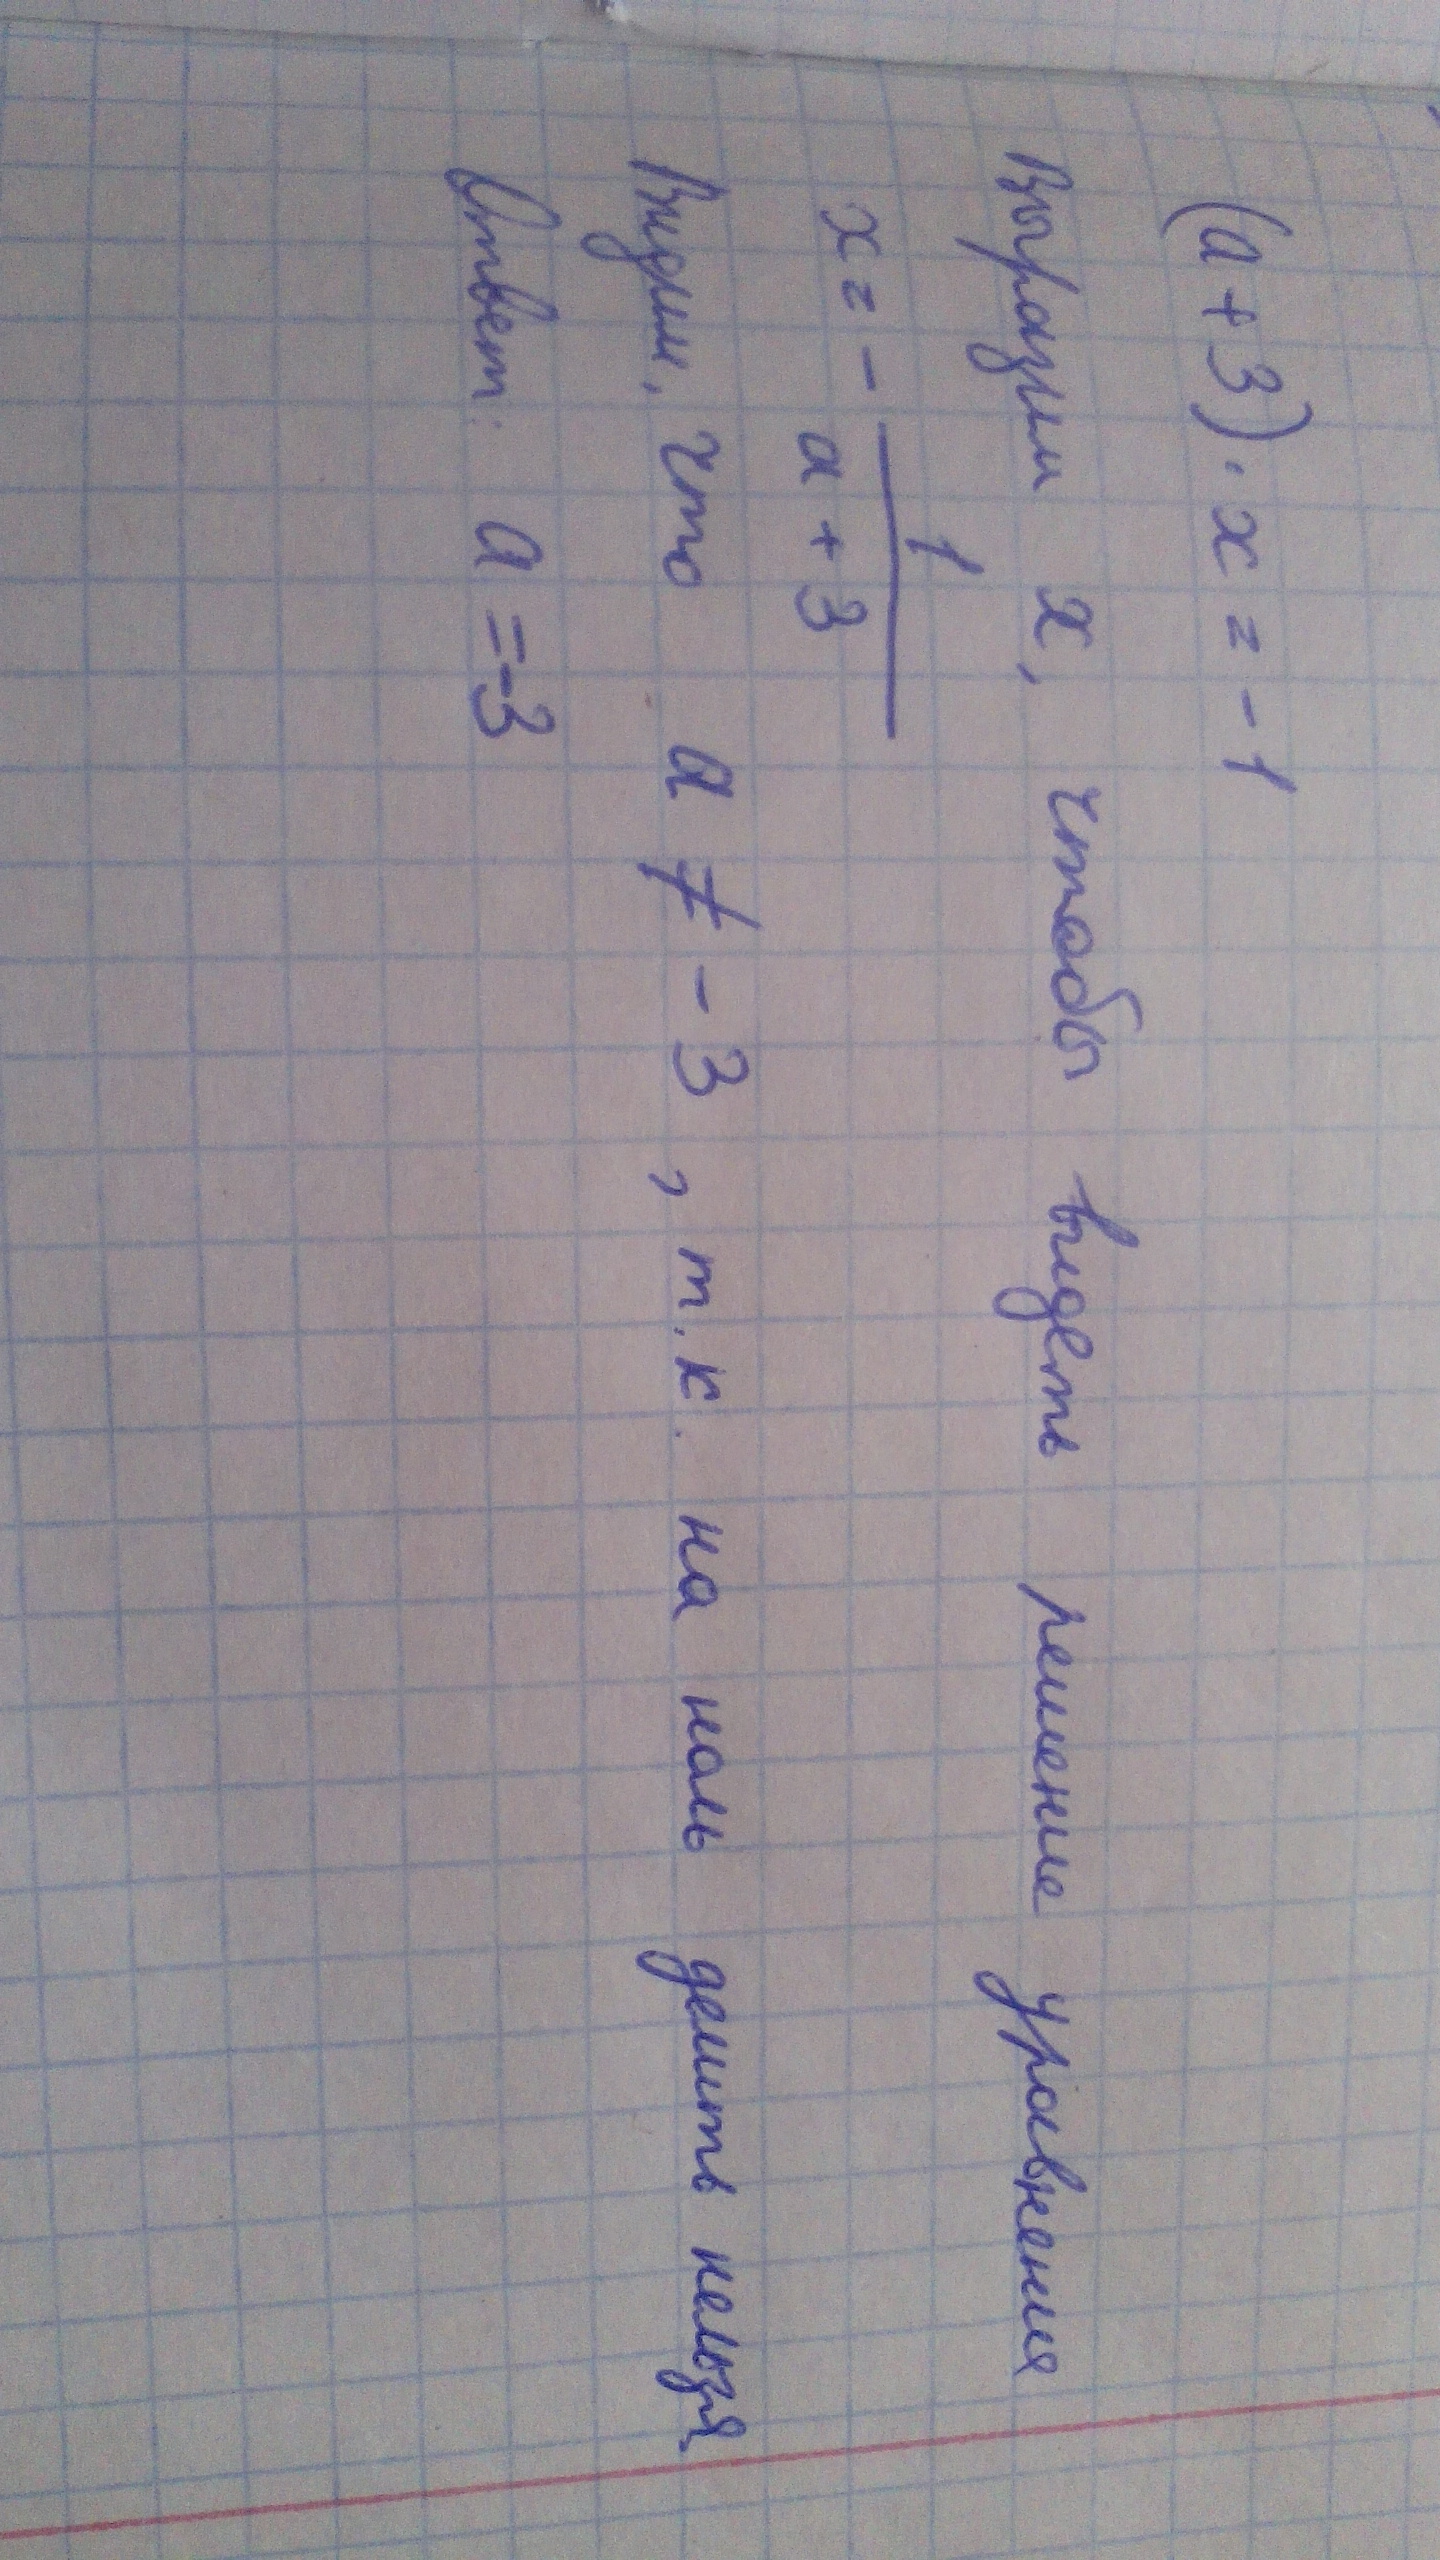 (a + 3) · x = - 1
Выразим x, чтобы видеть решение уравнения
x = - 1/(a + 3)
Видим, что a ≠ - 3, т.к. на ноль делить нельзя
Ответ: a = -3